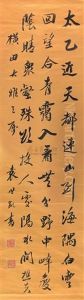 太乙近天都連山到海隅白雲
迴望合青靄入看無分野中峰變
陰晴眾壑殊欲投人宿隔水問樵夫
橫田大